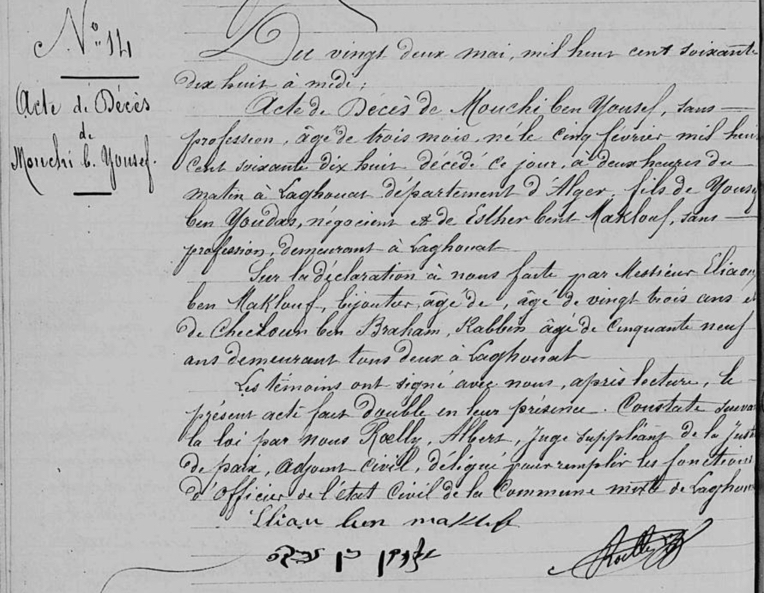 N° 14
Acte de Décès
de
Mouchi b. Yousef.
Du vingt deux mai, mil huit cent soixante
dix huit à midi;
Acte de Décès de Mouchi ben Yousef, sans
profession, âgé de trois mois, né le cinq février mil huit
cent soixante dix huit décédé ce jour, à deux heures du
matin à Laghouat département d'Alger, fils de Yousef
ben Youdas, négociant et de Esther bent Maklouf, sans
profession, demeurant à Laghouat
Sur la déclaration à nous faite par Messieur Eliaou
ben Maklouf, bijoutier, âgé de, âgé de vingt trois ans et
de Checkoun ben Braham, Rabbin âgé de cinquante neuf
ans demeurant tous deux à Laghouat
Les témoins ont signé avec nous, après lecture, le
présent acte fait double en leur présence. Constaté suivant
la loi par nous Roelly, Albert, Juge suppliant de la Justice
de paix, adjoint civil, délégué pour remplir les fonctions
d'Officier de l'état Civil de la Commune mixte de Laghouat
Eliau ben maklof
בן
Roelly